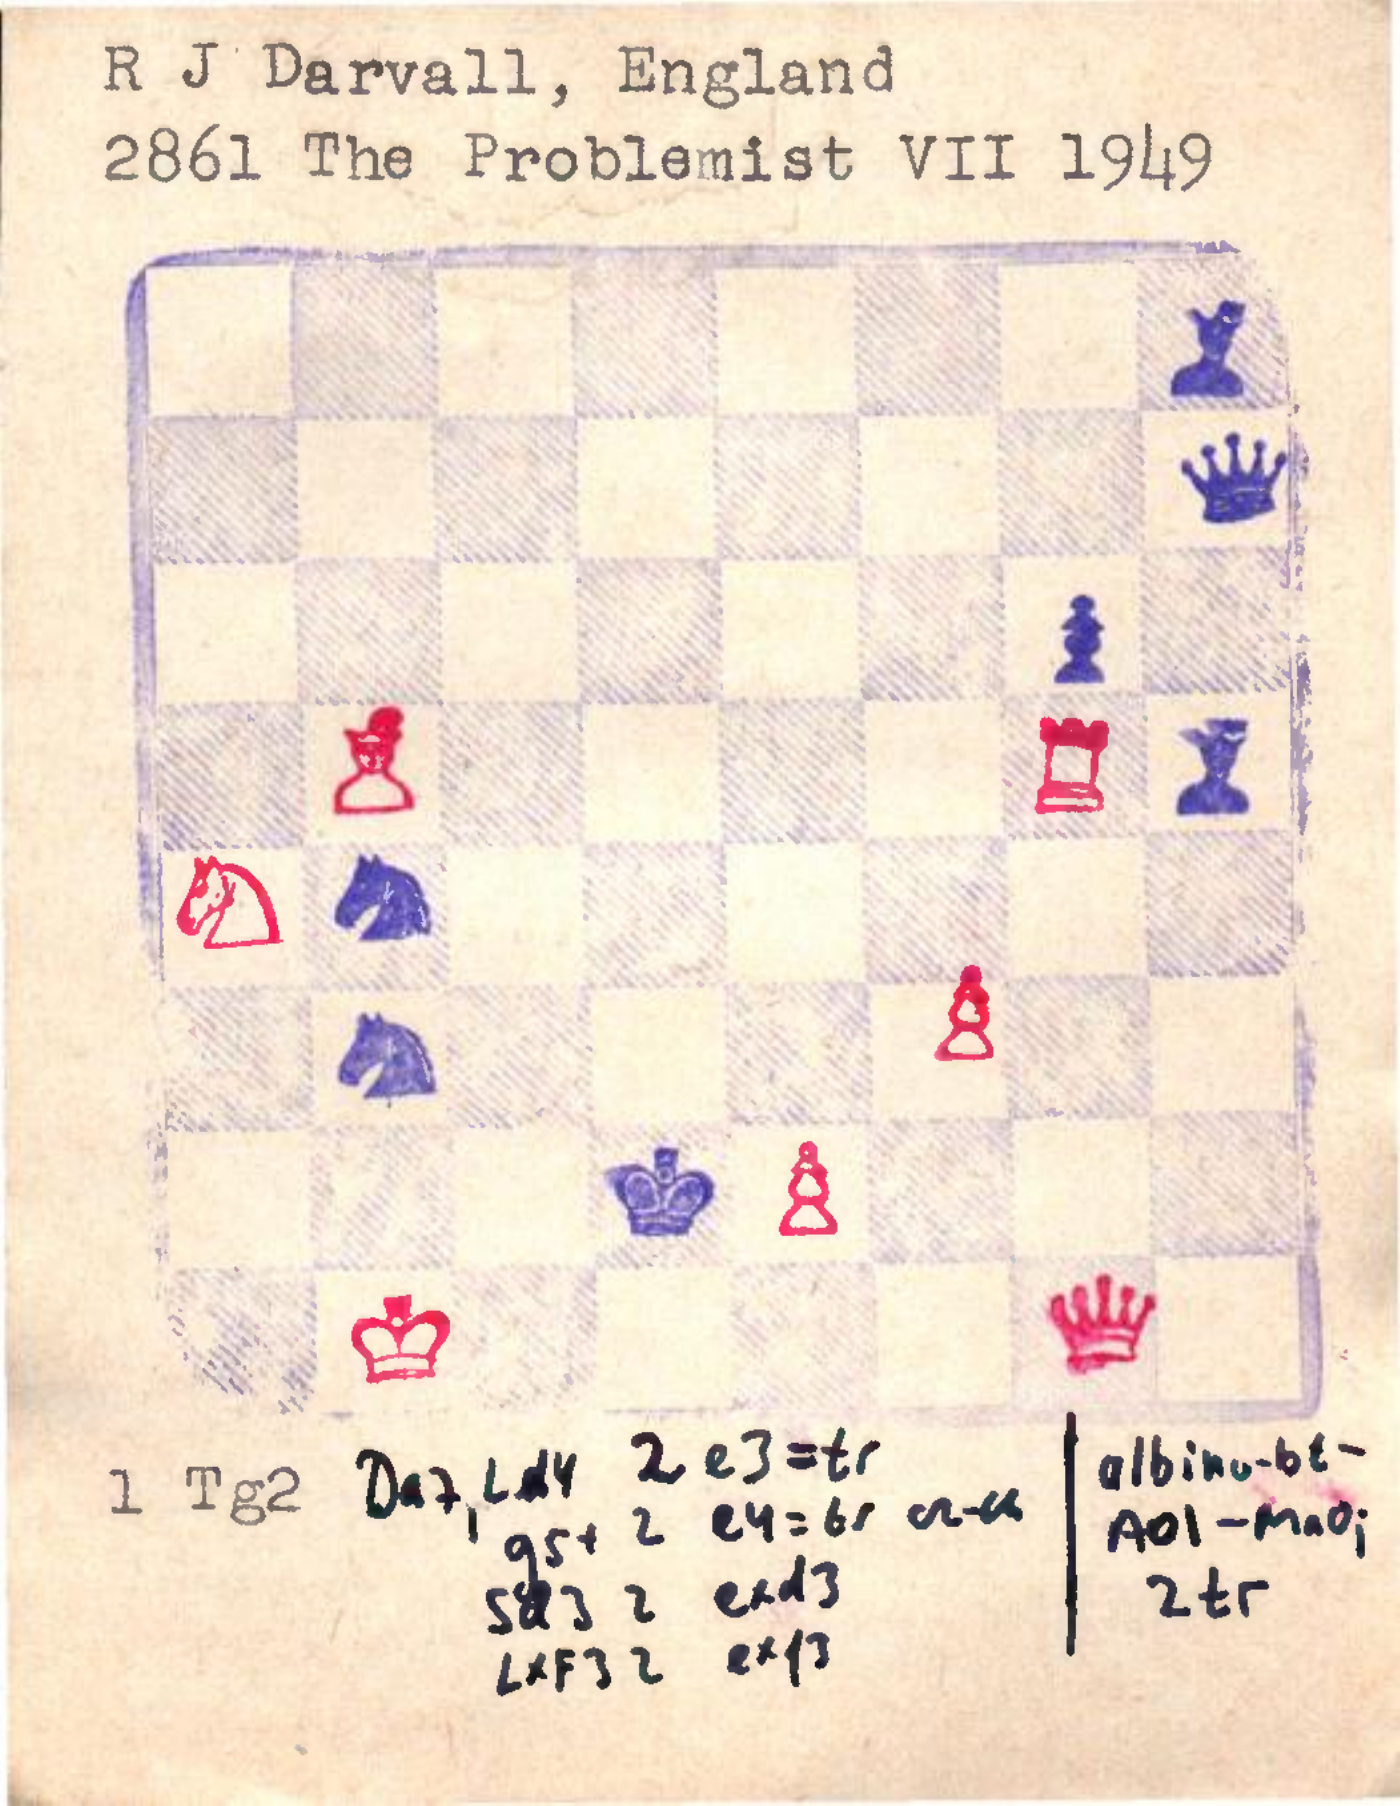 R J Darvall, England
2861 The Problemist VII 1949
1 Tg2 Da7, Ld4 2 e3=tr
g5+ 2 e4=tr
Sd3 2 exd3
Lxf3 2 exf3
albino-bt-
2tr